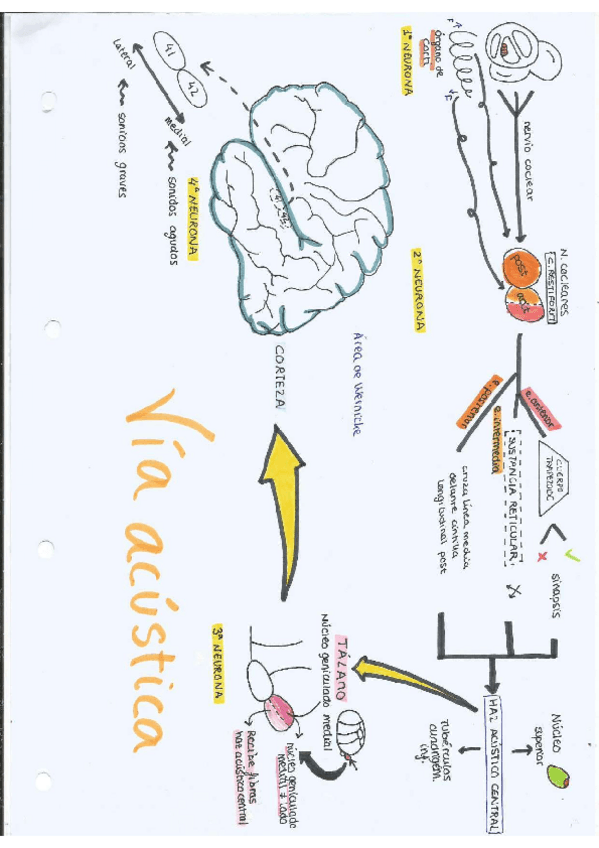 N. cocleares
C. RESTIFORM
nervio coclear
post
ant
órgano de
Corti
1ª NEURONA
2ª NEURONA
e. anterior
e. intermedia
e. posterior
CUERPO
TRAPEZOIDE
sinapsis
SUSTANCIA RETICULAR
cruza línea media
delante cintilla
longitudinal post
Núcleo
superior
HAZ ACÚSTICO CENTRAL
Tubérculos
cuadrigém.
inf.
TÁLAMO
Núcleo geniculado medial
núcleo geniculado
medial
Recibe fibras
haz acústico central
3ª NEURONA
Área de Wernicke
CORTEZA
41
42
41
42
lateral
medial
sonidos agudos
sonidos graves
4ª NEURONA
Vía acústica